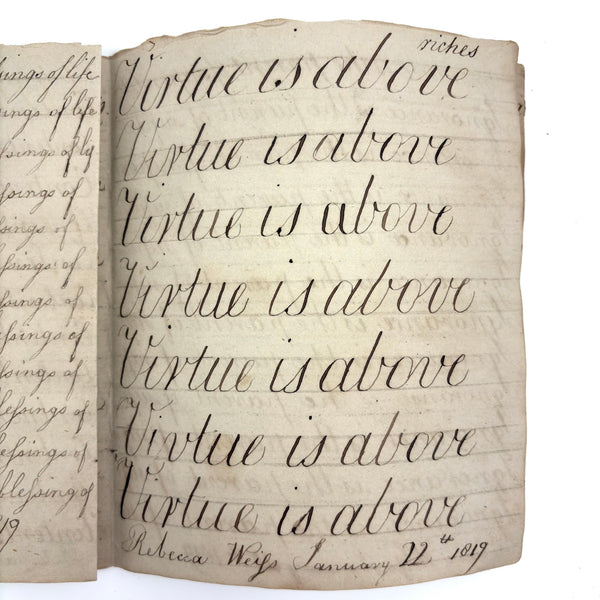 sings of life
sings of life
ſsings of
ſsings of
ſsings of
ſsings of
ſsings of
ſsings of
eſsings of
leſsings of
eſsings of
bleſsing of
19
riches
Virtue is above
Virtue is above
Virtue is above
Virtue is above
Virtue is above
Virtue is above
Virtue is above
Rebecca Weiſs January 22th 1819